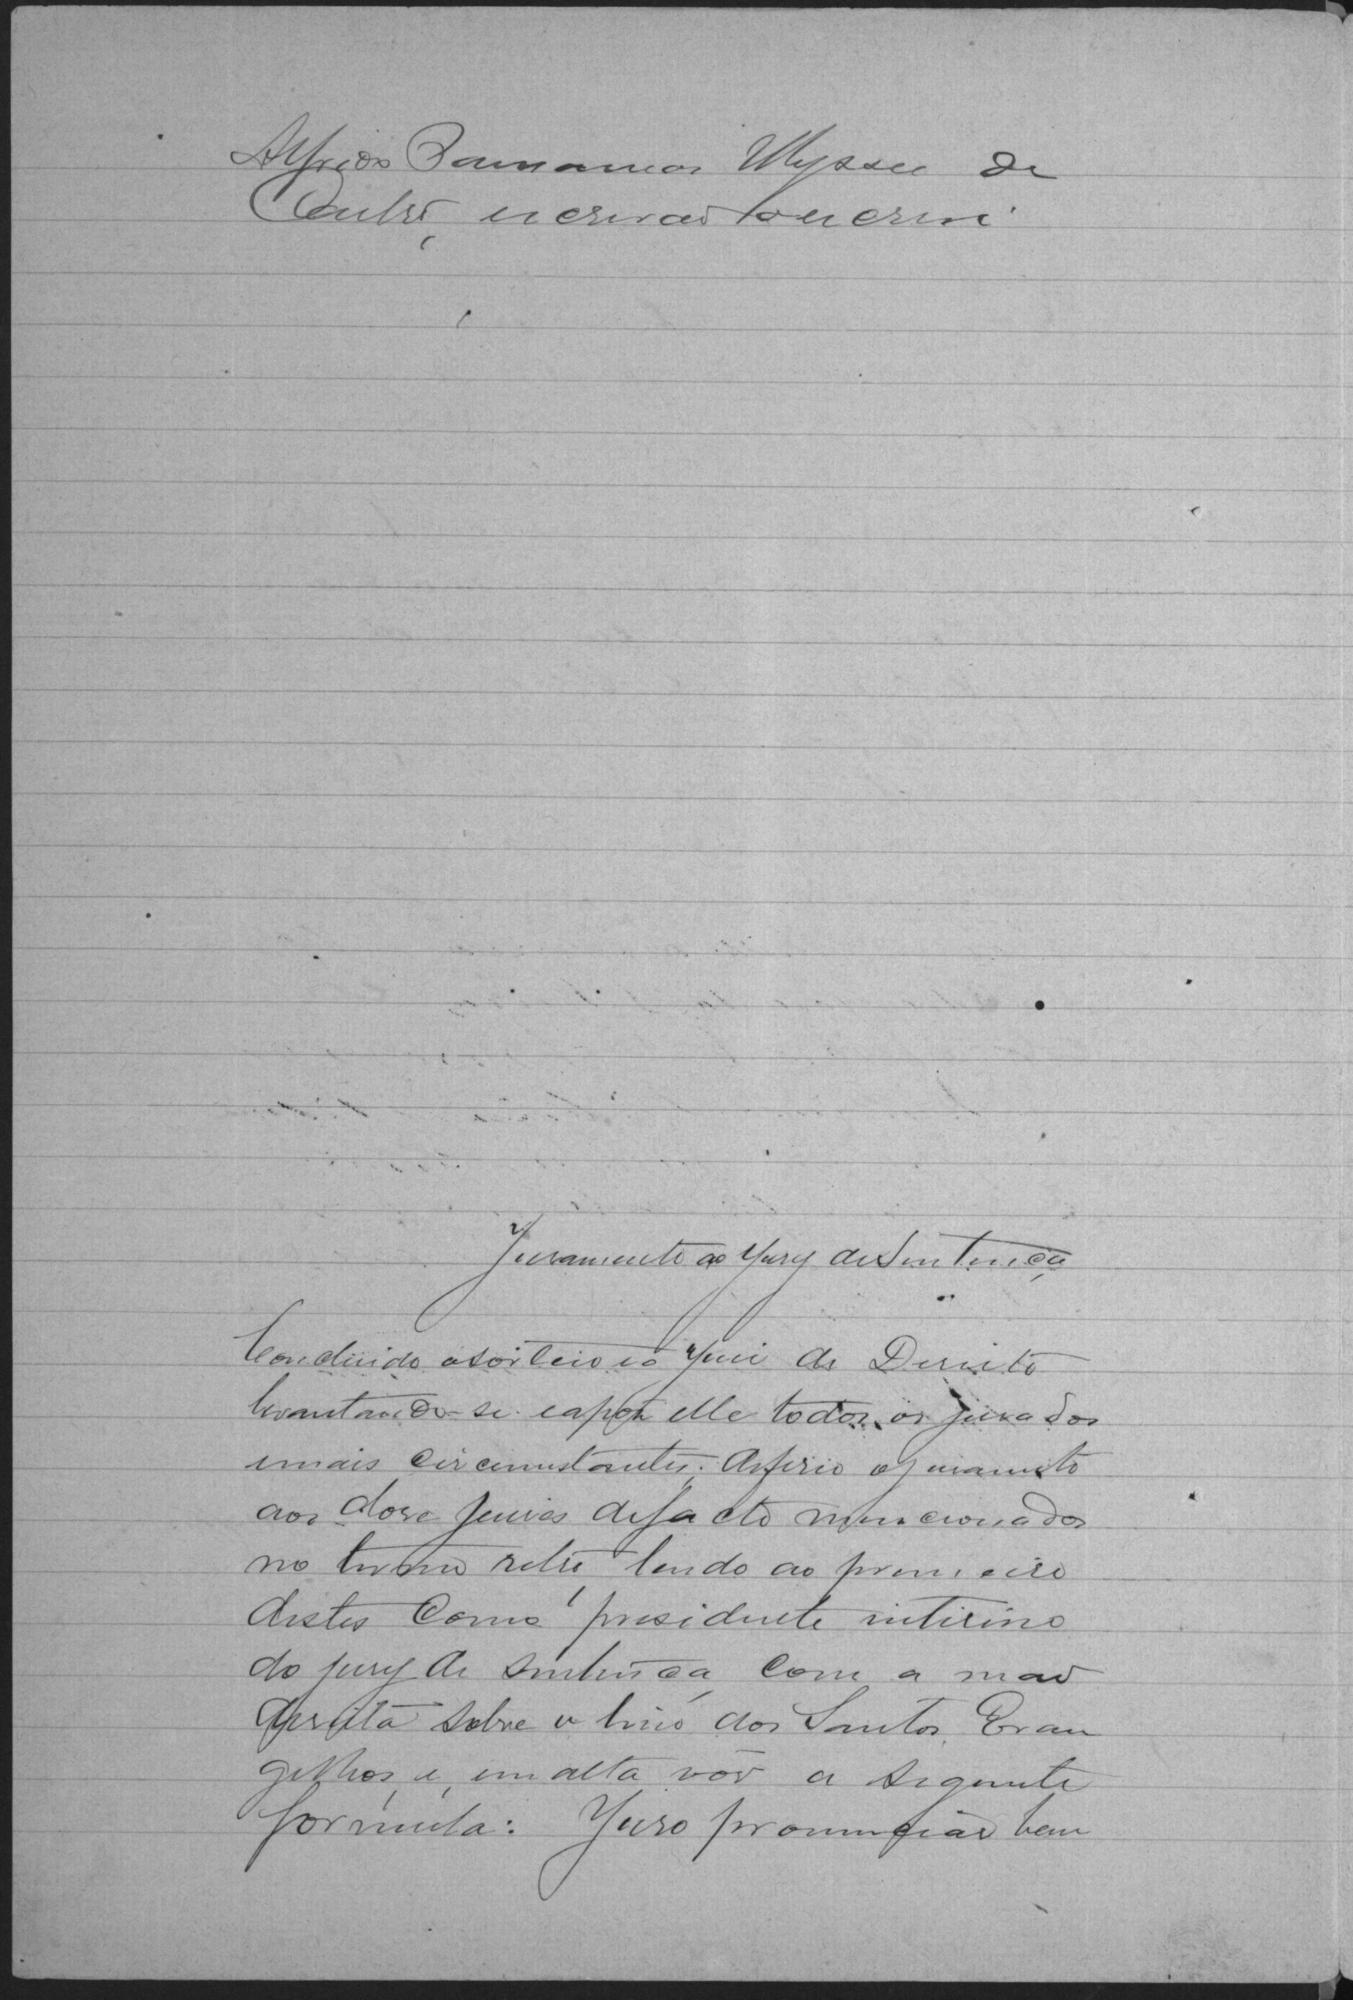 Alfredo Damamos Ulysses de
Castro, escrivão o escrevi
Juramento ao Jury de Sentença
Concluido o sorteio e o Juiz de Direito
levantando-se e apos elle todos os jurados
e mais circumstantes; deferio o juramento
aos dose Juises de facto mencionados
no termo retro, lendo ao primeiro
destes como presidente interino
do jury de sentença, com a mao
direita sobre o livro dos Santos Evan
gelhos, e, em alta voz a seguinte
formula: Juro pronunciar bem